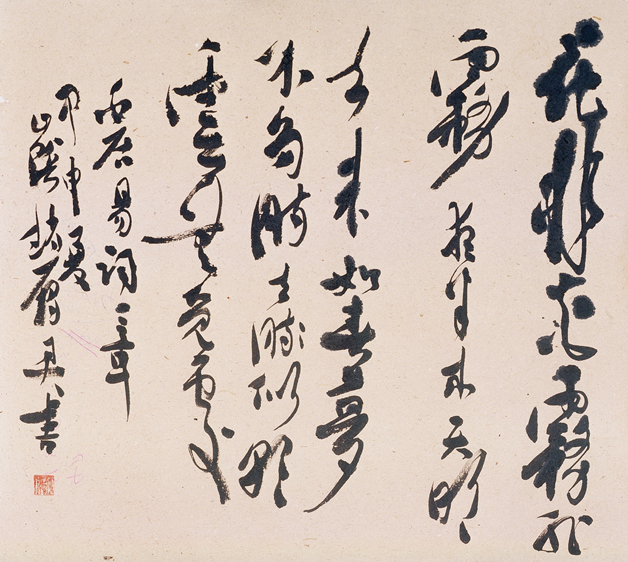 花非花霧非
霧夜半來天明
去來如春夢
不多時去似朝
雲無覓處
白居易詞一章
甲申夏
趙 書